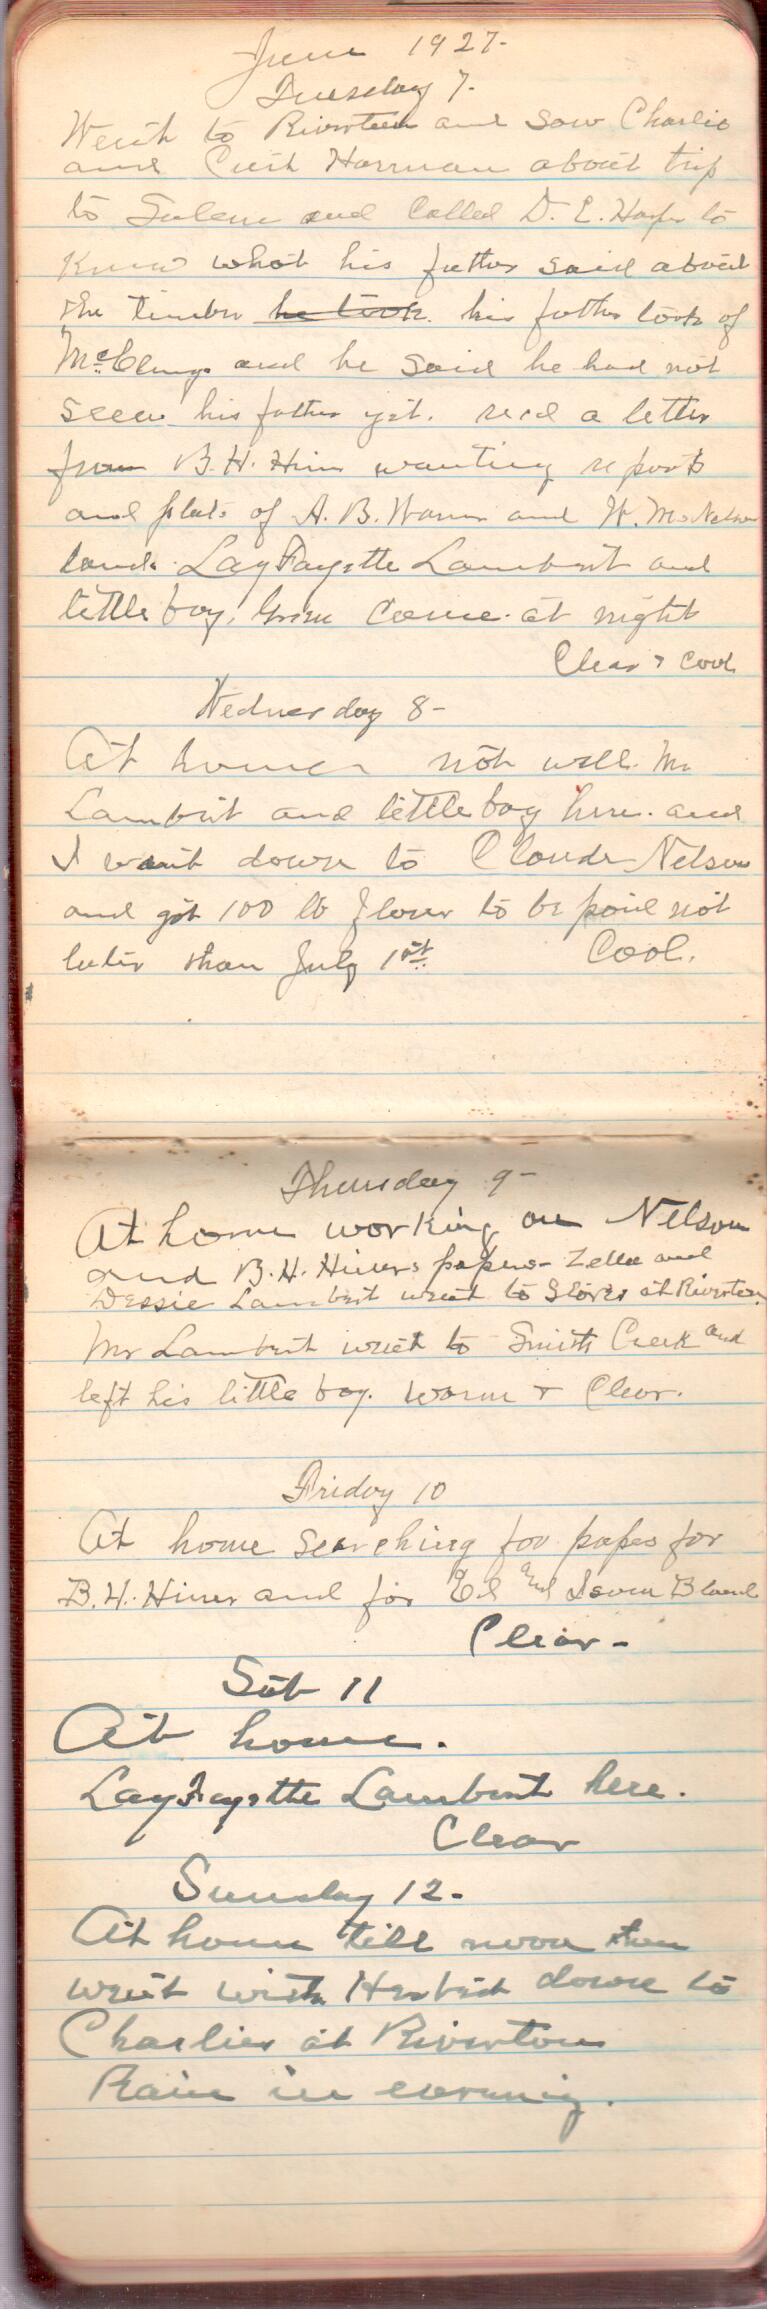 June 1927-
Tuesday 7-
Went to Riverton and saw Charlie
and Harman about trip
to Salem and Called D. E. Harper to
know what his father said about
the timber he took his father took of
McClung and he said he had not
seen his father yet. recd a letter
from B. H. Hiner wanting reports
and plats of A. B. Warner and W. M. Nelson
land. LayFayette Lambert and
little boy, come at night
Clear & Cool
Wednesday 8-
At home not well. Mr
Lambert and little boy here. and
I went down to Claude Nelson
and got 100 lb flour to be paid not
later than July 1st. Cool.
Thursday 9-
At home working on Nelson
and B. H. Hiners papers- Zella and
Dessie Lambert went to Stores at Riverton
Mr Lambert went to Smith Creek and
left his little boy. Warm & Clear.
Friday 10
At home searching for papes for
B. H. Hiner and for Ed and Isom Bland
Clear-
Sat 11
At home.
LayFayette Lambert here.
Clear
Sunday 12-
At home till noon then
went with Herbert down to
Charlies at Riverton
Rain in evening.